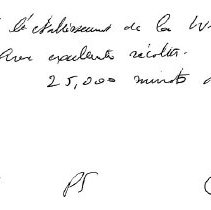 l'établissement de la W
Avec excellente récolte.
25,000 minots d
PS